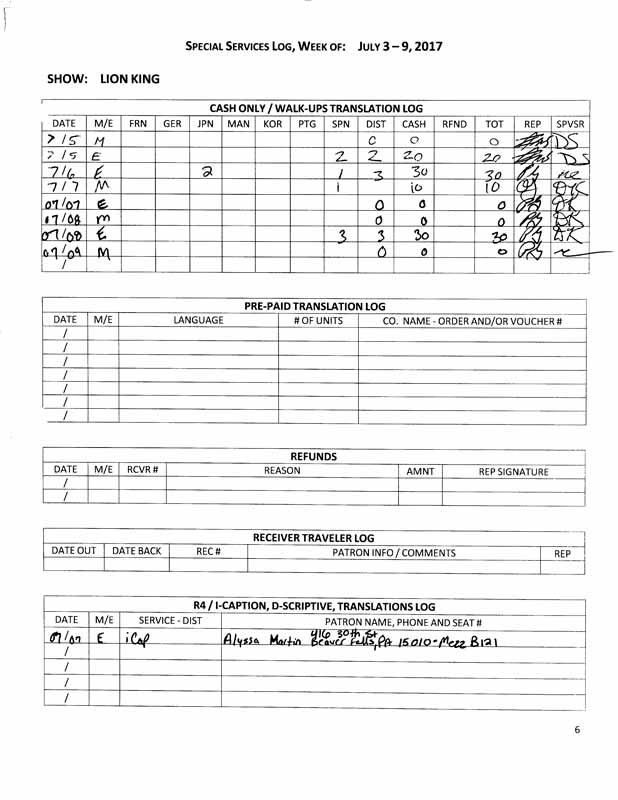 SPECIAL SERVICES LOG, WEEK OF: JULY 3 – 9, 2017
SHOW: LION KING
CASH ONLY / WALK-UPS TRANSLATION LOG
DATE M/E FRN GER JPN MAN KOR PTG SPN DIST CASH RFND TOT REP SPVSR
7/5 M 0 0 0 DS
7/5 E 2 2 20 20 DS
7/6 E 2 1 3 30 30
7/7 M 1 10 10
07/07 E 0 0 0
07/08 m 0 0 0
07/08 E 3 3 30 30
07/09 M 0 0 0
/
PRE-PAID TRANSLATION LOG
DATE M/E LANGUAGE # OF UNITS CO. NAME - ORDER AND/OR VOUCHER #
/
/
/
/
/
/
/
REFUNDS
DATE M/E RCVR # REASON AMNT REP SIGNATURE
/
/
RECEIVER TRAVELER LOG
DATE OUT DATE BACK REC # PATRON INFO / COMMENTS REP
R4 / I-CAPTION, D-SCRIPTIVE, TRANSLATIONS LOG
DATE M/E SERVICE - DIST PATRON NAME, PHONE AND SEAT #
07/07 E iCap Alyssa Martin 416 30th St Beaver Falls, PA 15010-Mezz B121
/
/
/
/
6